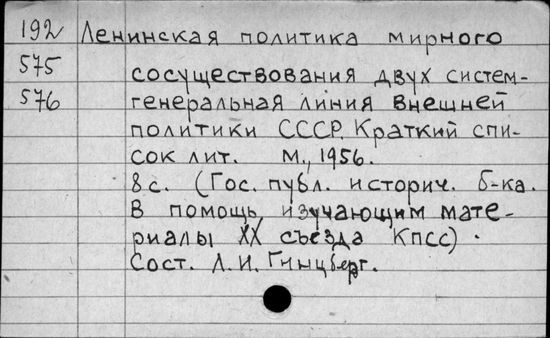 192 Ленинская политика мирного
575 сосуществования двух систем-
576 генеральная линия внешней
политики СССР. Краткий спи-
сок лит. М., 1956.
8 с. (Гос. публ. историч. б-ка.
В помощь изучающим мате-
риалы XX съезда КПСС).
Сост. Л. И. Гинцберг.